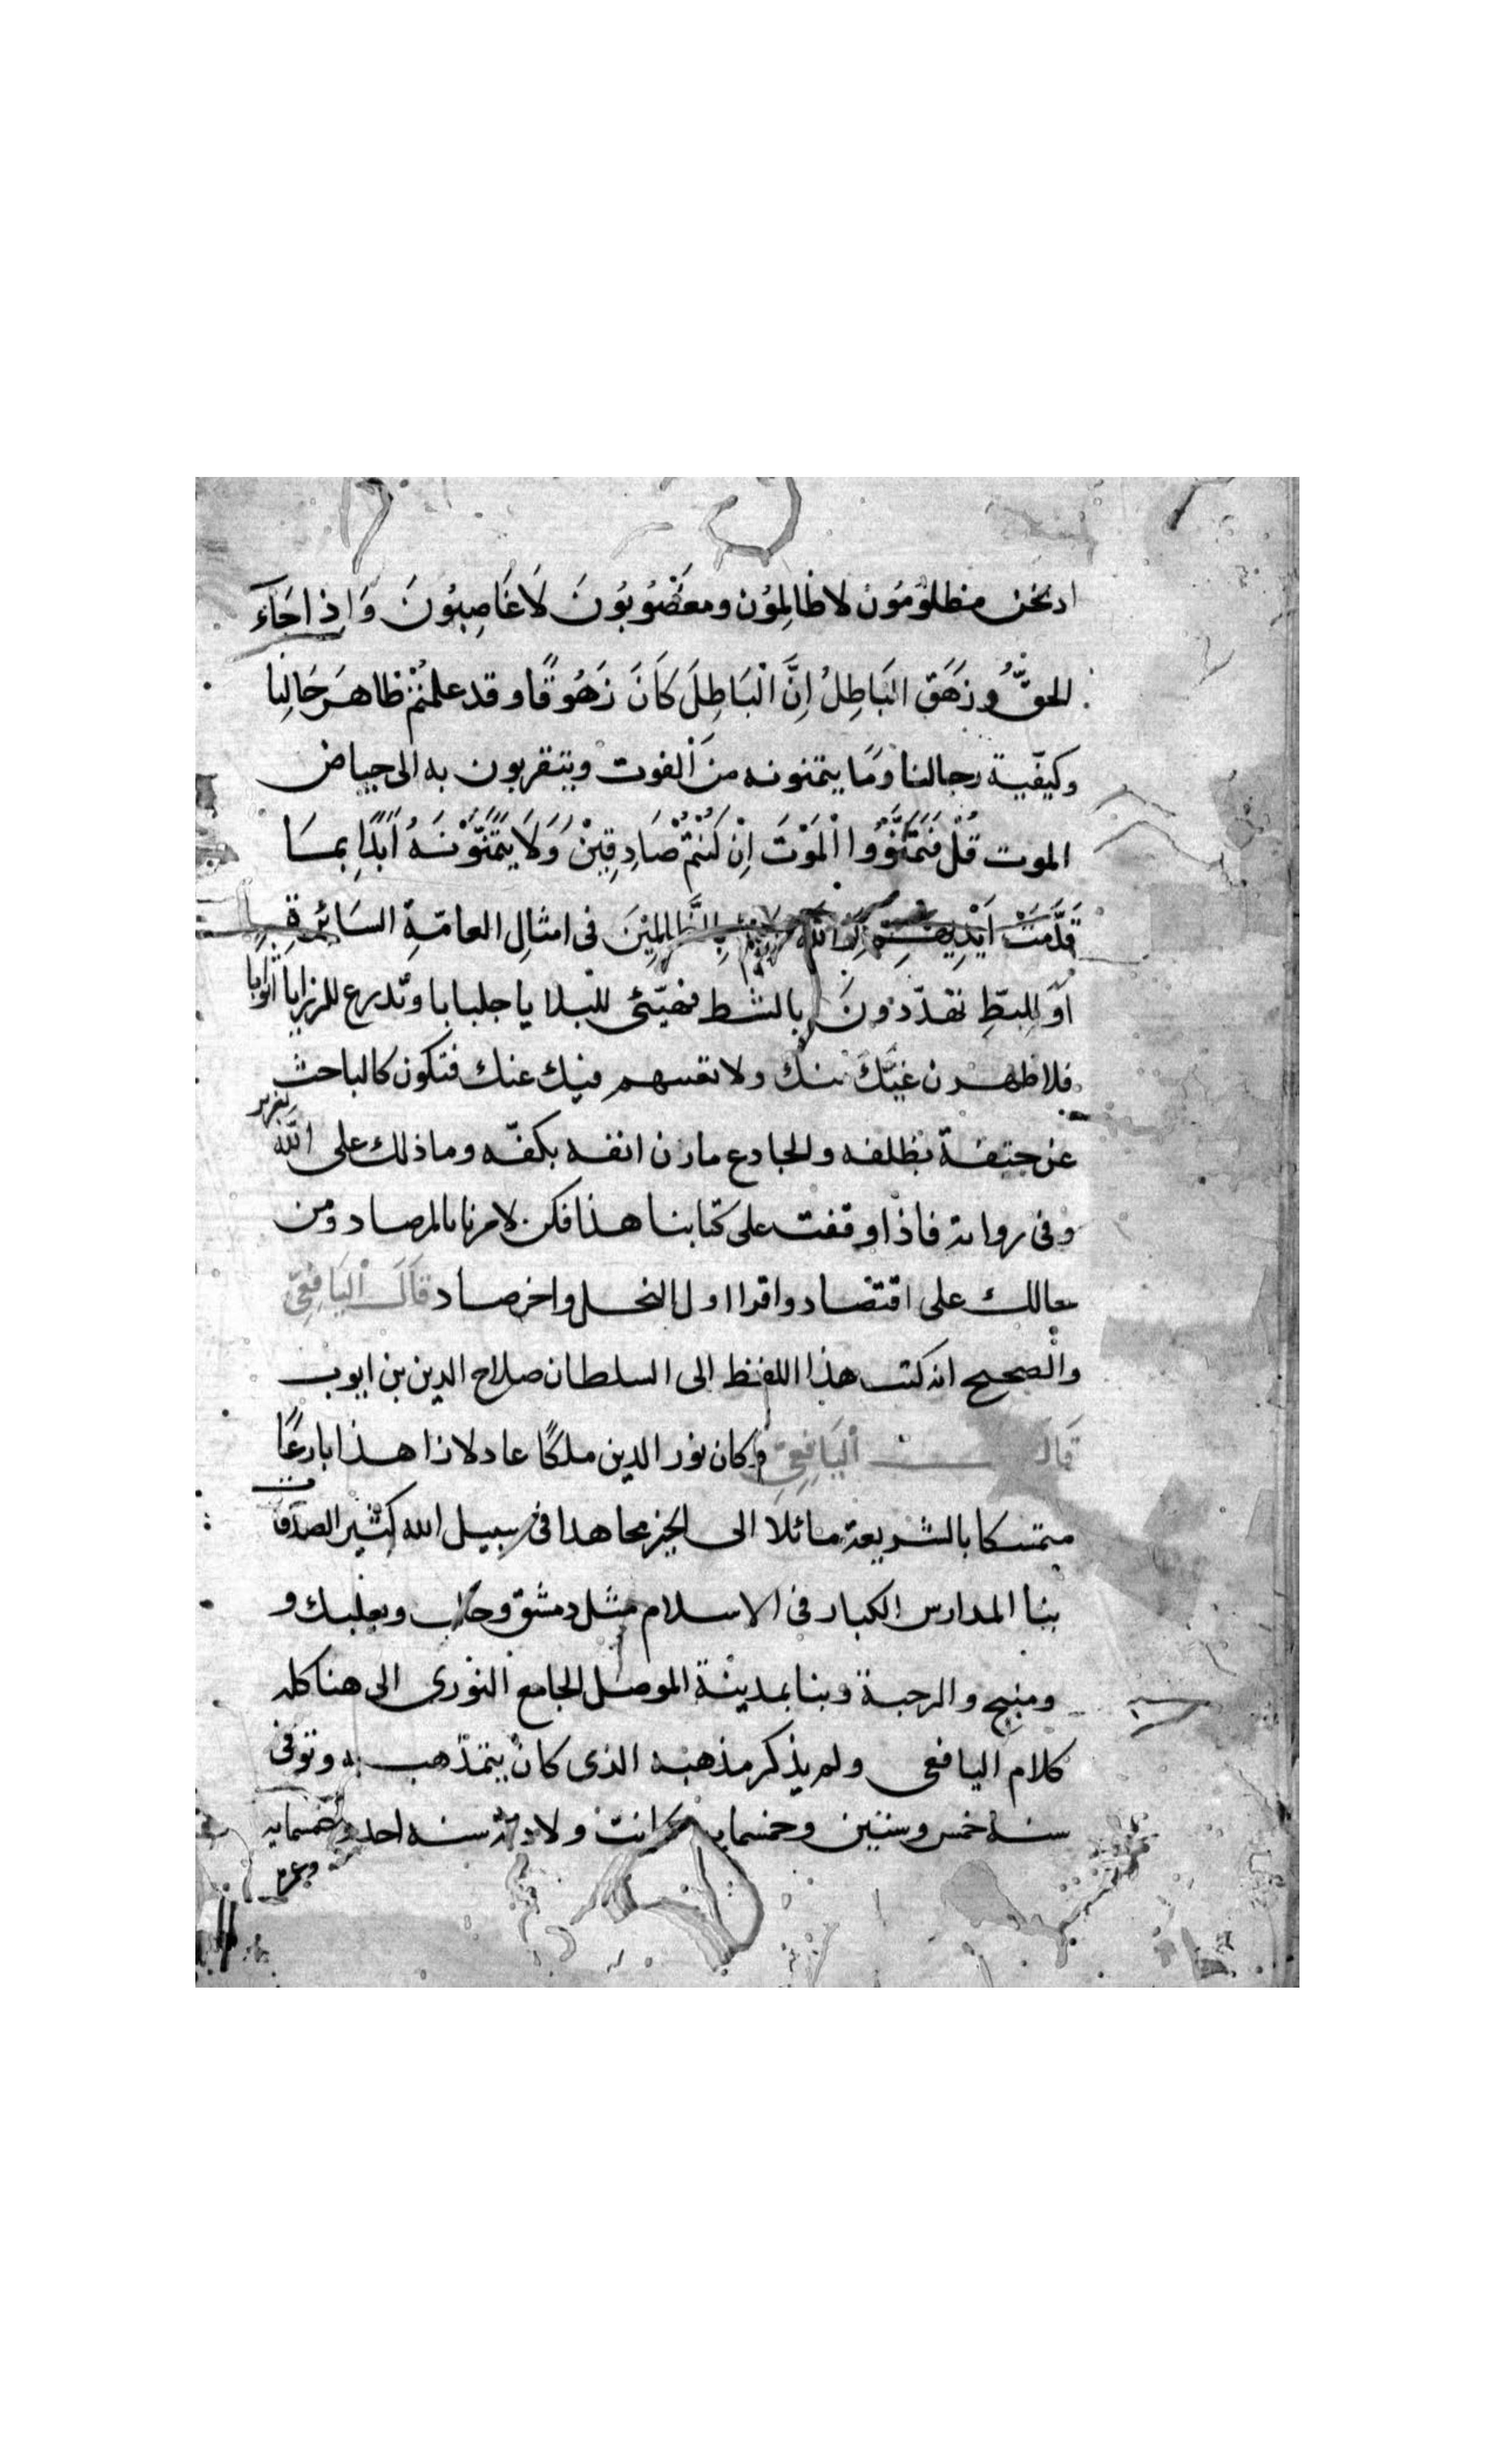 اذ نحن مظلوُمُون لا ظالِموُن ومغضُوبُونَ لَا غَاصِبُونَ وَاِذا جَاءَ
الحقُّ وزَهَقَ البَاطِلُ اِنَّ الْبَاطِلَ كَانَ زَهُوقًا وقد علمتُمْ ظاهرَ حَالِنا
وكيفّية رجالنا وَمَا يتمنونه منَ الفوت ويتقربون به الى حياض
الموت قُلْ فَتَمَنَّوُوا الْمَوْتَ اِنْ كُنْتُمْ صَادِقِيْنَ وَلَا يَتَمَنَّوْنَهُ اَبَدًا بِمَا
قَدَّمَتْ اَيْدِيهِمْ وَاللّٰه بِالظَّالِمِيْنَ فى امثالِ العامّةِ السَائرة
اَوَ لِلبطِّ تهدّدونَ بالشط فهيّئى للبلايا جلبابا وتدرع للرزايا اثوابا
فلاظهرن غيّكَ منك ولا فيك عنك فتكون كالباحث
عن حتفة بظلفه والجادع مارن انفه بكفّه وما ذلك على اللّه بعزيز
وفى رواية فاذا وقفت على كتابنا هذا فكن لامرنا بالمرصاد ومن
حالك على اقتصاد واقرا اول النحل واخر صاد قَالَ اليَافِعِىّ
والصحيح انه كتب هذا اللفظ الى السلطان صلاح الدين بن ايوب
قَالَ اليَافِعِىّ وكان نور الدين ملكًا عادلا زاهدا بارعًا
متمسكا بالشريعة مائلا الى الخير مجاهدا فى سبيل الله كثير الصدقات
بنا المدارس الكبار فى الاسلام مثل دمشق وحلب وبعلبك و
ومنبج والرحبة وبنا بمدينة الموصل الجامع النورى الى هنا كله
كلام اليافعى ولم يذكر مذهبه الذى كان يتمذهب به وتوفى
سنة خمس وستين وخمسمايه وكانت ولادته سنه احد وخمسمايه